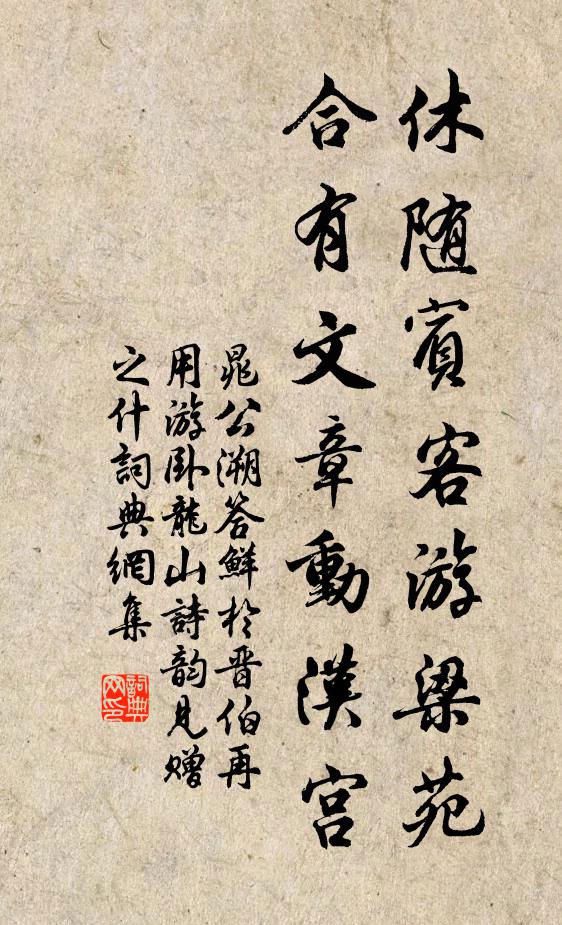 休随賓客游梁苑
合有文章動漢宫
晁公溯答鮮于晋伯再
用游卧龍山詩韵見赠
之什詞典網集
詞典网印